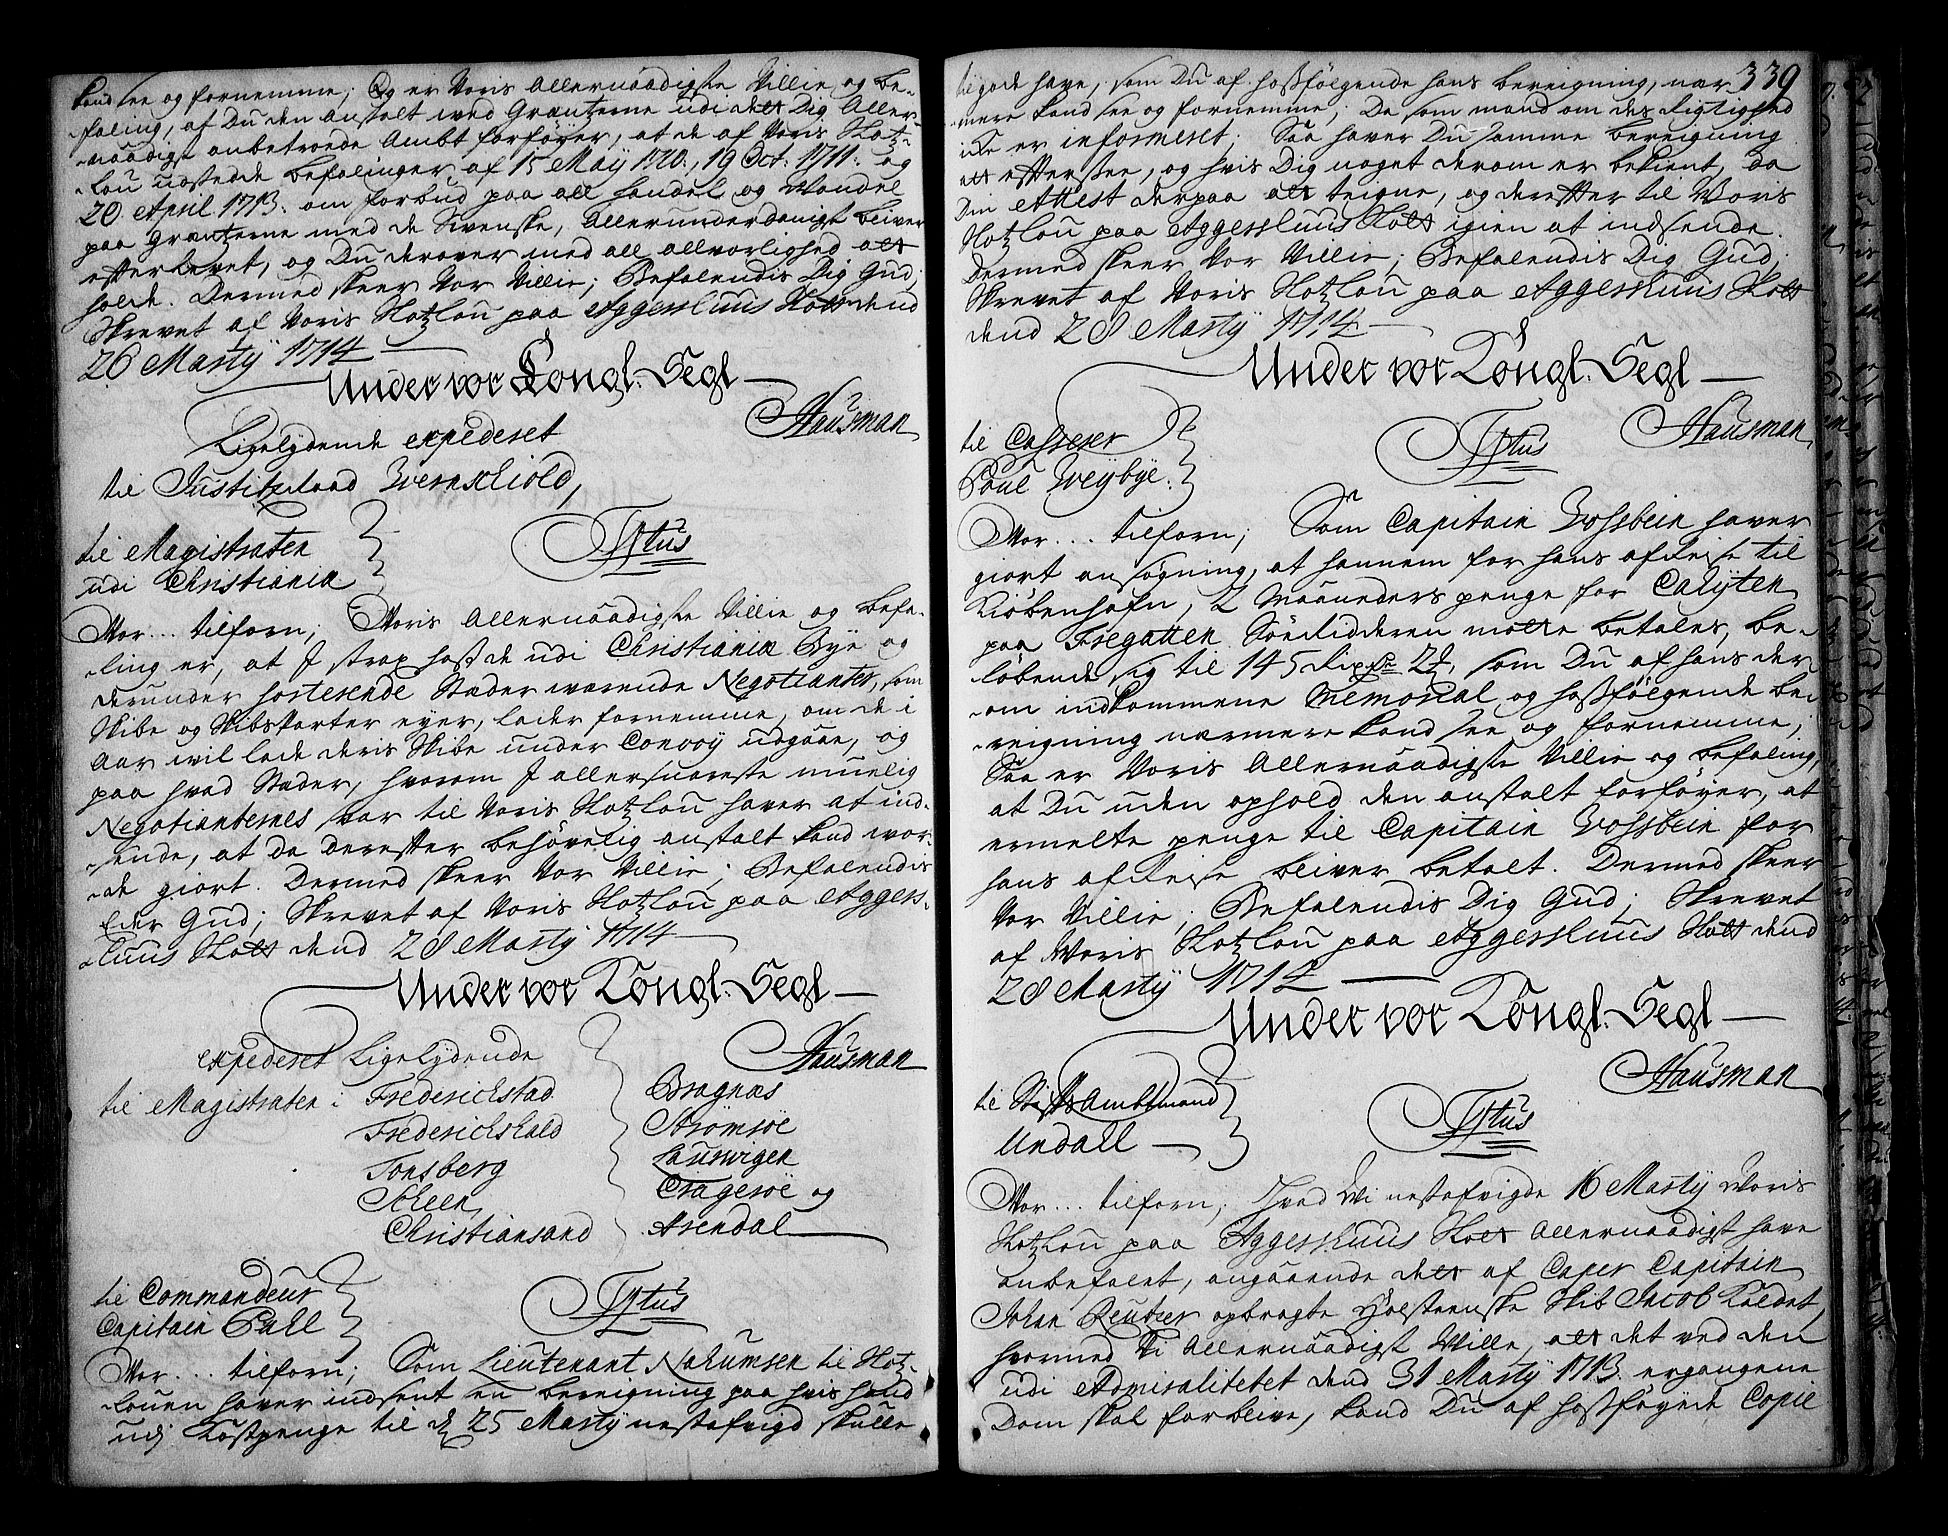 kand see og fornemme; Og er Voris Allernaadigste Villie og be-
-faling, at Du den anstalt wed Græntzerne udi det Dig Aller-
-naadigst anbetroede Ambt forføyer, at de af Voris Slotz-
-Lou udstædde befalinger af 15 Maÿ 1710, 19 Oct: 1711. og
20 April 1713. om forbud paa all handel og Wandel
paa Græntzerne med de Svenske, Allerunderdanigst bliver
efterlevet, og Du derover med all alvorlighed alt
holde. Dermed skeer Vor Villie; Befalendis Dig Gud;
Skrevet af Voris Slotzlou paa Aggershuus Slott dend
26 Martÿ 1714
Under vor Kongl: Segl
Hausman
Ligelydende expederet
til Justitzraad Wernschiold,
til Magistraten
udi Christiania
Tÿtus
Vor... tilforn; Voris Allernaadigste Villie og befa-
ling er, at I strax hos de udi Christiania Bye og
derunder sorterende Stæder warende Negotianter, som
Skibe og Skibsparter eyer, lader fornemme, om de i
Aar wil lade deris Skibe under Convoÿ udgaae, og
paa hvad Stæder, hvorom I allersnareste muelig
Negotianternes svar til Voris Slotzlou haver at ind-
-sende, at da derefter behøvelig anstalt kand wor-
-de giort. Dermed skeer Vor Villie; Befalendis
Eder Gud; Skrevet af Voris Slotzlou paa Aggers-
-huus Slott dend 28 Martÿ 1714
Under vor Kongl: Segl
Hausman
expederet Ligelydende
til Magistraten i Frederichstad
Frederichshald
Tonsberg
Scheen
Christiansand
Bragnæs
Strømsøe
Laurwigen
Cragerøe og
Arendal
til Commandeur
Capitain Pall
Tÿtus
Vor... tilforn; Som Lieutenant Nahumsen til Slotz-
-Louen haver indsent en beregning paa hvis hand
udj Kostpenge til d. 25 Martÿ nestafvigt skulle
339
tilgode have, som Du af hosfølgende hans beregning, nær-
-mere kand see og fornemme; Da som mand om des rigtighed
icke er informeret; Saa haver Du samme beregning
at efftersee, og hvis Dig noget derom er bekient, da
Din Attest derpaa at teigne, og derefter til Voris
Slotzlou paa Aggershuus Slott igien at indsende.
Dermed skeer Vor Villie; Befalendis Dig Gud;
Skrevet af Voris Slotzlou paa Aggershuus Slott
dend 28 Martÿ 1714
Under vor Kongl: Segl
Hausman
til Casserer
Poul Weybye.
Tÿtus
Vor... tilforn; Som Capitain Vosbein haver
giort ansøgning, at hannem for hans afreise til
Kiøbenhafn, 2 Maaneders penge for Cahÿten
paa Fregatten Søeridderen motte betales, be-
-løbende sig til 145 Rixdr 2, som Du af hans der-
-om indkommene Memorial og hosfølgende be-
-reigning nærmere kand see og fornemme;
Saa er Voris Allernaadigste Villie og befaling,
at Du uden ophold den anstalt forføyer, at
ermelte penge til Capitain Vosbein for
hans afreise bliver betalt. Dermed skeer
Vor Villie; Befalendis Dig Gud; Skrevet
af Woris Slotzlou paa Aggershuus Slott dend
28 Martÿ 1714
Under vor Kongl: Segl
Hausman
til StiftsAmbtmand
Undall
Tÿtus
Vor... tilforn; Hvad Wi nestafvigde 16 Martÿ Woris
Slotzlou paa Aggershuus Slott Allernaadigst have
anbefalet, angaaende det af Caper Capitain
Johan Reutzer opbragte Holsteenske Skib Jacob kaldet,
hvormed Vi Allernaadigst Wille, at det ved den
udi Admiralitetet dend 31 Martÿ 1713. ergangene
Dom skal forblive, kand Du af hosføyede Copie